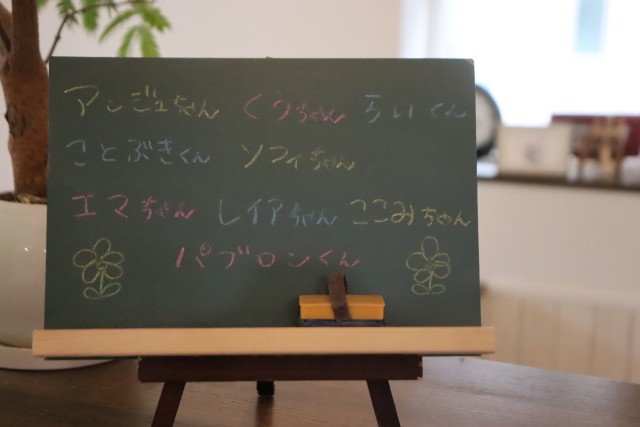 アンジュちゃん くうちゃん らいくん
ことぶきくん ソフィちゃん
エマちゃん レイアちゃん ここみちゃん
パブロンくん